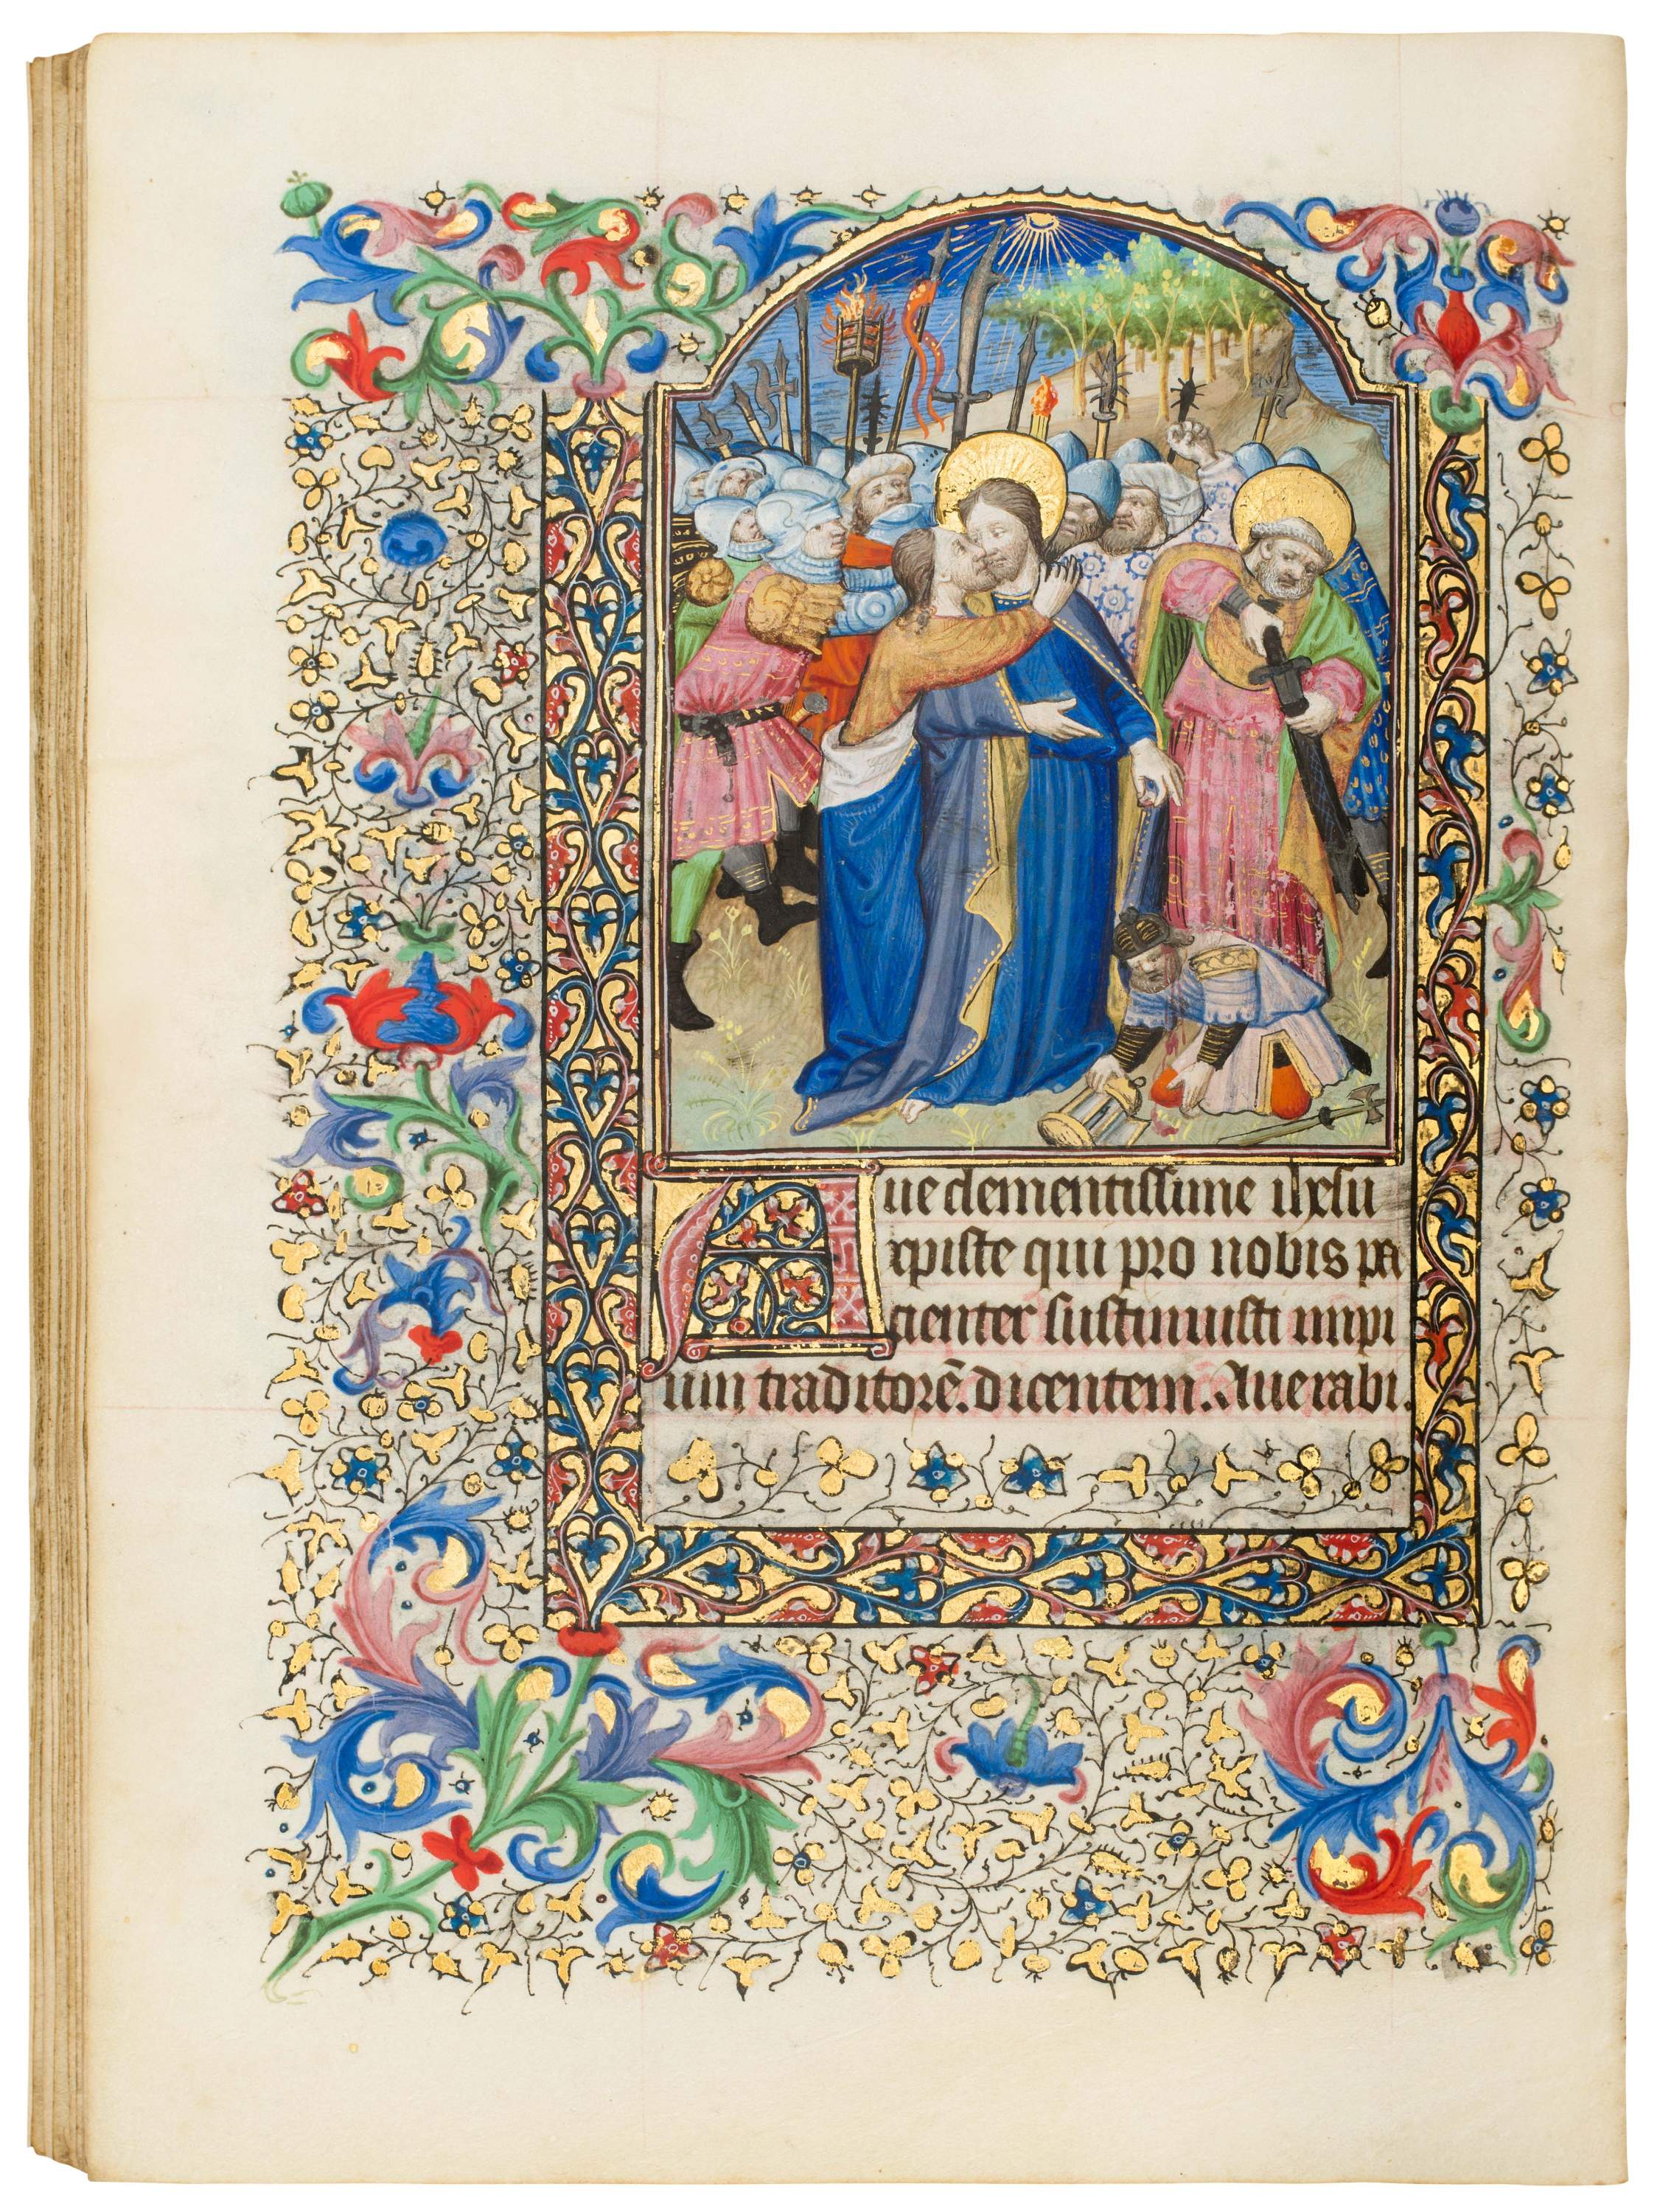 Aue clementissime ihesu
xpiste qui pro nobis pa
cienter sustinuisti impi
um traditorē. dicentem. Aue rabi.